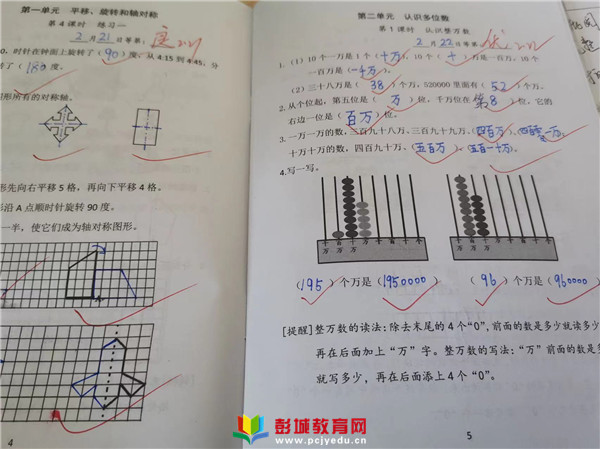 第一单元 平移、旋转和轴对称
第 4 课时 练习一
2月21日等第:
0，时针在钟面上旋转了（90）度，从 4:15 到 4:45，分
转了（180）度。
图形所有的对称轴。
形先向右平移 5 格，再向下平移 4 格。
形沿 A 点顺时针旋转 90 度。
一半，使它们成为轴对称图形。
4
第二单元 认识多位数
第 1 课时 认识整万数
2月22等第:
1.（1）10 个一万是 1 个（十万），10 个（十）万是一百万，10 个
一百万是（一千万）。
（2）三十八万是（38）个万，520000 里面有（52）个万。
2.从个位起，第五位是（万）位，千万位在（第8）位，它的
右边一位是（百万）位。
3.一万一万的数，三百九十八万、三百九十九万、（四百万）、（四百零一万）。
十万十万的数，四百九十万、（五百万）、（五百一十万）。
4.写一写。
千万 百万 十万 万 千 百 十 个
千万 百万 十万 万 千 百 十 个
（195）个万是（1950000） （96）个万是（960000）
[提醒]整万数的读法：除去末尾的 4 个“0”，前面的数是多少就读多少
再在后面加上“万”字。整万数的写法：“万”前面的数是多
就写多少，再在后面添上 4 个“0”。
5
彭城教育网
www.pcjyedu.cn